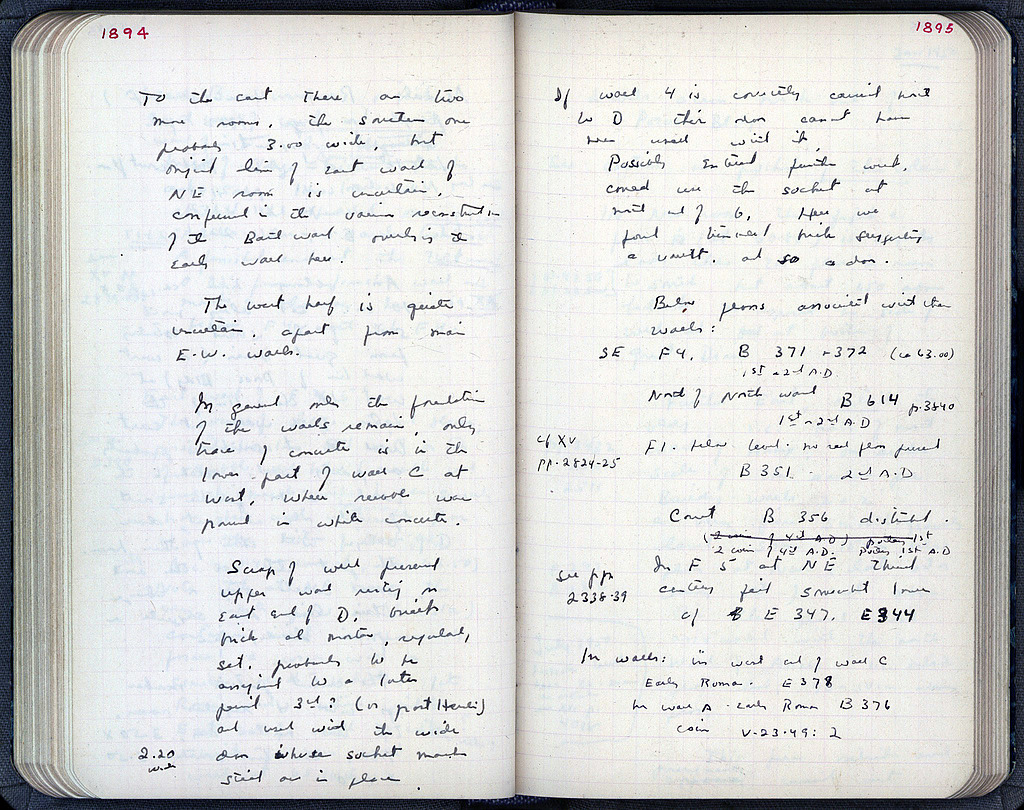 1894
To the east there are two
more rooms, the southern one
probably 3.00 wide, but
original line of East wall of
NE room is uncertain,
confused in the various reconstructions
of the East wall overlying the
Early wall here.
The west half is quite
uncertain, apart from main
E.W. walls.
In general only the foundations
of the walls remain, only
trace of concrete is in the
lower part of wall C at
West, where reservoir was
found in white concrete.
Scrap of well preserved
upper wall resting on
East end of D,
brick and mortar, regular,
set, probably to be
assigned to a later
period 3rd? (or post Heruli)
and used with the wide
2.20 wide
door whose socket
still are in place
1895
If wall 4 is correctly carried north
to D this door cannot have
been used with it.
Possibly Ex further west,
could use the socket at
north end of 6, Here we
found brick suggesting
a vault, and so a door.
Below floors associated with these
walls:
SE F4. B 371 + 372 (ca 63.00)
1st - 2nd A.D.
North of North wall B 614 p. 3840
1st - 2nd A.D
cf XV
pp. 2824-25
F1. below level. no real floor found
B 351. 2nd A.D
Court B 356 disturbed.
(2 coins of 4th A.D) pottery 1st
2 coins of 4th A.D. pottery 1st A.D
see pp
2338-39
In F 5 at NE third
century fill somewhat lower
cf E 347. E344
In walls: in west end of wall C
Early Roman. E 378
In wall A - Early Roman B 376
coin V-23-49: 2